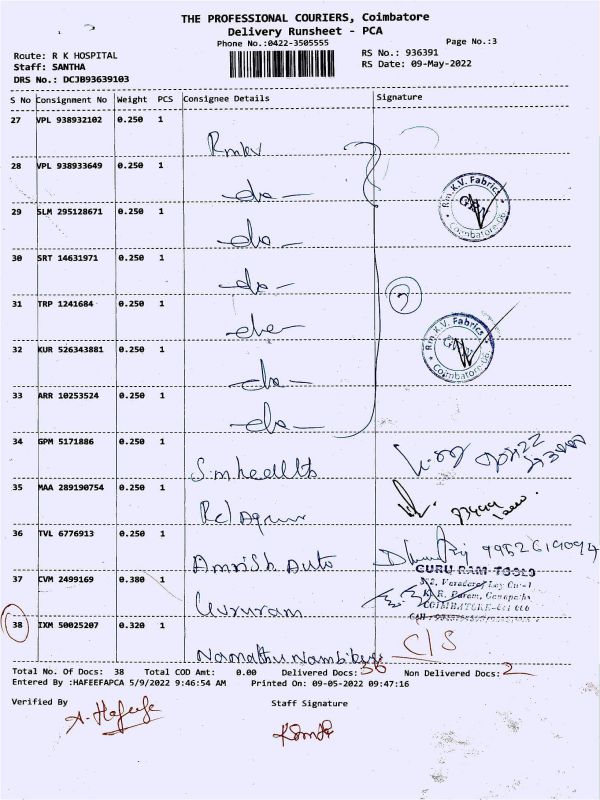 THE PROFESSIONAL COURIERS, Coimbatore
Delivery Runsheet - PCA
Phone No.:0422-3505555
Page No.:3
Route: R K HOSPITAL
RS No.: 936391
Staff: SANTHA
RS Date: 09-May-2022
DRS No.: DCJB93639103
S No Consignment No Weight PCS Consignee Details Signature
27 VPL 938932102 0.250 1
Rmkv
28 VPL 938933649 0.250 1
- do -
Rm.K.V. Fabrics
Coimbatore
29 SLM 295128671 0.250 1
- do -
30 SRT 14631971 0.250 1
- do -
31 TRP 1241684 0.250 1
- do -
Rm.K.V. Fabrics
Coimbatore
32 KUR 526343881 0.250 1
- do -
33 ARR 10253524 0.250 1
- do -
34 GPM 5171886 0.250 1
S.m health
35 MAA 289190754 0.250 1
36 TVL 6776913 0.250 1
Amrish Auto
GURU RAM TOOLS
37 CVM 2499169 0.380 1
K. R. Puram,
COIMBATORE-641 006
Gururam
38 IXM 50025207 0.320 1
C/S
Namathu Nambikai
Total No. Of Docs: 38 Total COD Amt: 0.00 Delivered Docs: 36 Non Delivered Docs: 2
Entered By :HAFEEFAPCA 5/9/2022 9:46:54 AM Printed On: 09-05-2022 09:47:16
Verified By Staff Signature
A. Hafeefa